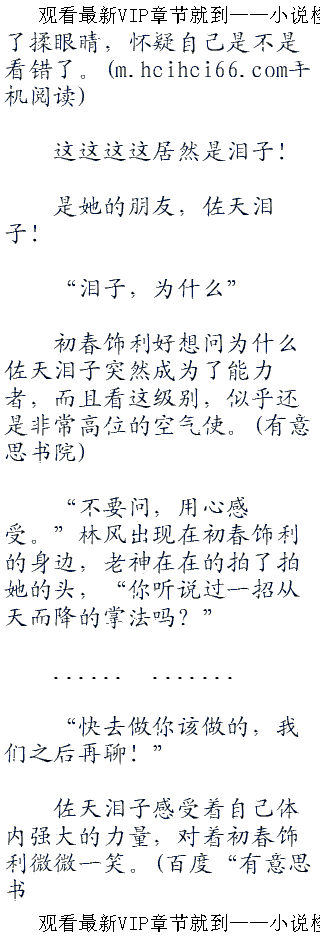 观看最新VIP章节就到一一小说检
了揉眼睛，怀疑自己是不是
看错了。(m.hcihci66.com手
机阅读)
这这这这居然是泪子！
是她的朋友，佐天泪
子！
“泪子，为什么”
初春饰利好想问为什么
佐天泪子突然成为了能力
者，而且看这级别，似乎还
是非常高位的空气使。(有意
思书院)
“不要问，用心感
受。”林风出现在初春饰利
的身边，老神在在的拍了拍
她的头，“你听说过一招从
天而降的掌法吗？”
...... .......
“快去做你该做的，我
们之后再聊！”
佐天泪子感受着自己体
内强大的力量，对着初春饰
利微微一笑。(百度“有意思
书
观看最新VIP章节就到一一小说检